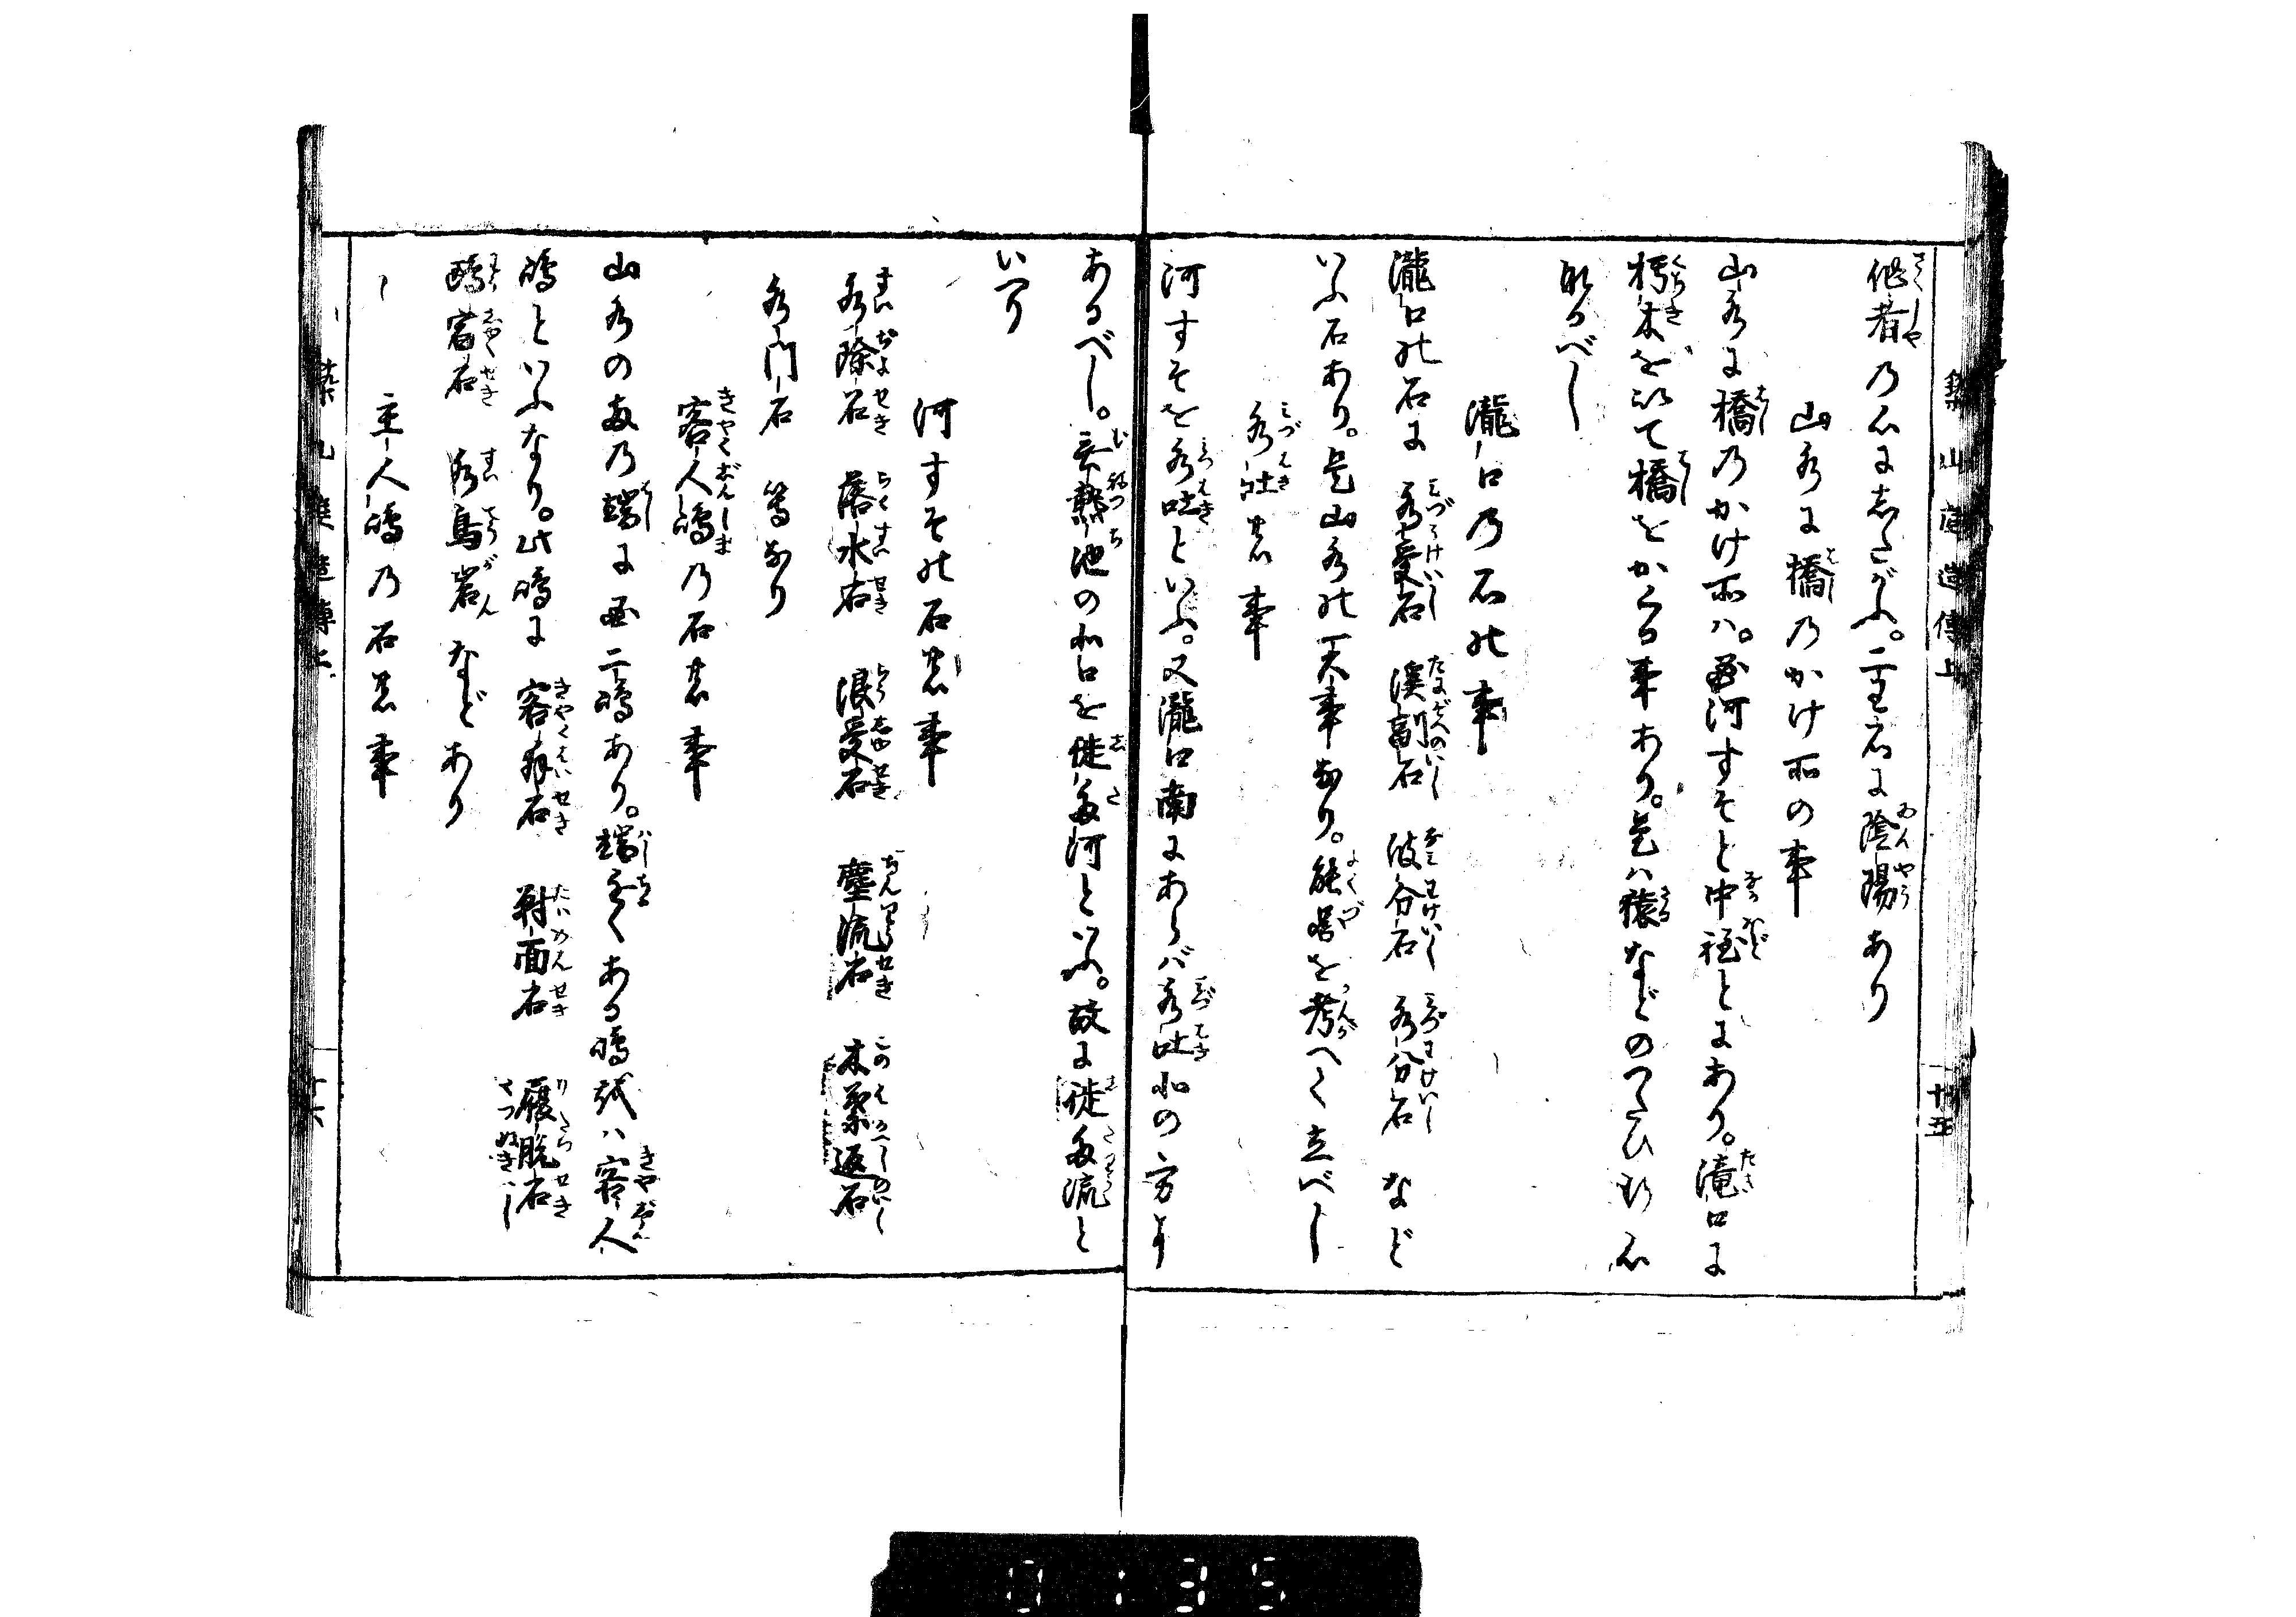 築山庭造傳上
十五
作者乃心にしたがふ。二王石に陰陽あり
山水に橋乃かけ所の事
山水に橋乃かけ所ハ。河すそと中程とにあり。滝口に
朽木を以て橋をかくる事あり。是ハ猿などのつたひ
なるべし
瀧口乃石の事
瀧口の石に 水受石 渓副石 波分石 水分石 など
いふ石あり。是山水の大事なり。能畧を考へて立べし
水吐の事
河すそを水吐といふ。又瀧口南にあらバ水吐北の方に
あるべし。無熱池の北口を徙多河といふ。故に徙多流と
いへり
河すその石の事
水除石 落水石 浪受石 塵流石 木葉返石
水門石 等なり
客人嶋乃石の事
山水の乃端に二嶋あり。端ちかくある嶋ハ客人
嶋といふなり。此嶋に 客拝石 對面石 履脱石
鴎宿石 水鳥岩 などあり
主人嶋乃石の事
築山庭造傳上
十六
0135